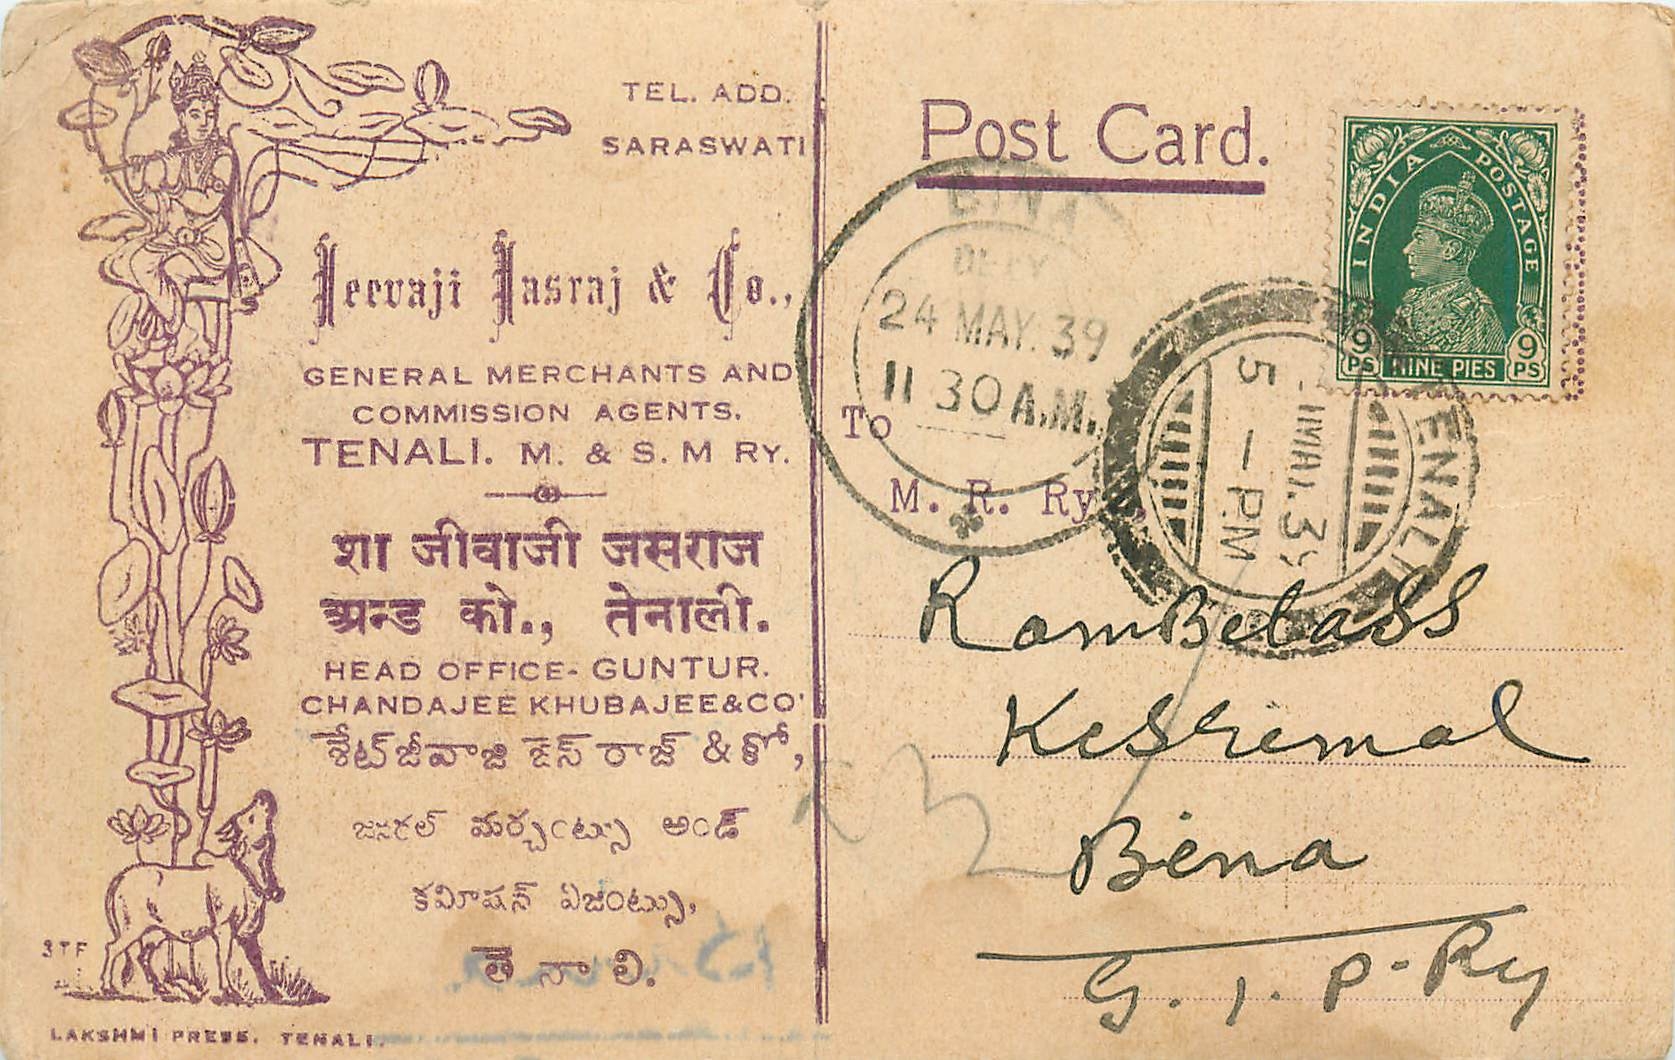 TEL. ADD.
SARASWATI
Jeevaji Jasraj & Co.,
GENERAL MERCHANTS AND
COMMISSION AGENTS.
TENALI. M. & S. M RY.
शा जीवाजी जसराज
अन्ड को., तेनाली.
HEAD OFFICE- GUNTUR.
CHANDAJEE KHUBAJEE&CO'
శేట్ జీవాజి జెస్ రాజ్ & కో,
జనరల్ మర్చంట్సు అండ్
కమీషన్ ఏజంట్సు,
తె నా లి.
3TF
LAKSHMI PRESS. TENALI.
Post Card.
INDIA POSTAGE
9 PS NINE PIES 9 PS
BINA
DELY
24 MAY. 39
11 30 A.M.
TENALI
5 - PM
MAY. 39
To
M. R. Ry
RamBelass
Keshrimal
Bina
G. I. P. Ry